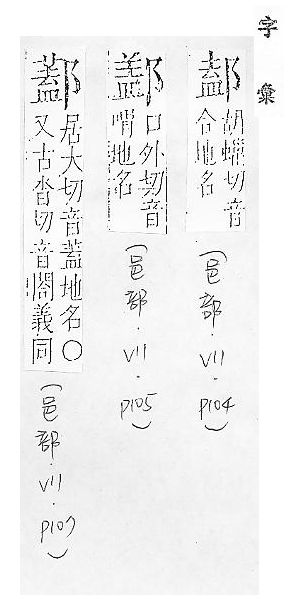 字彙
胡蠟切音
合地名
(邑部.VII.P104)
口外切音
地名
(邑部.VII.P105)
居大切音蓋地名○
又古沓切音閤義同
(邑部.VII.P107)